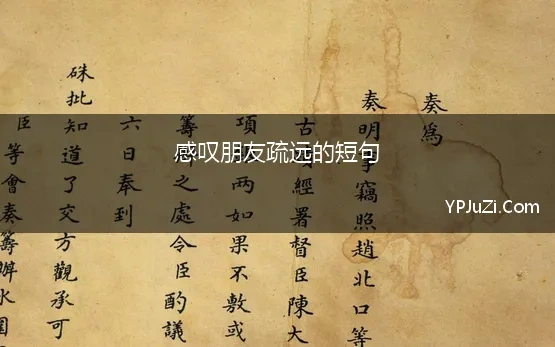 感叹朋友疏远的短句
YPJuZi.Com
奏為
奏明事竊照趙北口等
古經署督臣陳大
項两如果不敷或
籌之處令臣酌議
六日奉到
硃批知道了交方觀承可
臣等會奏籌辦水圍